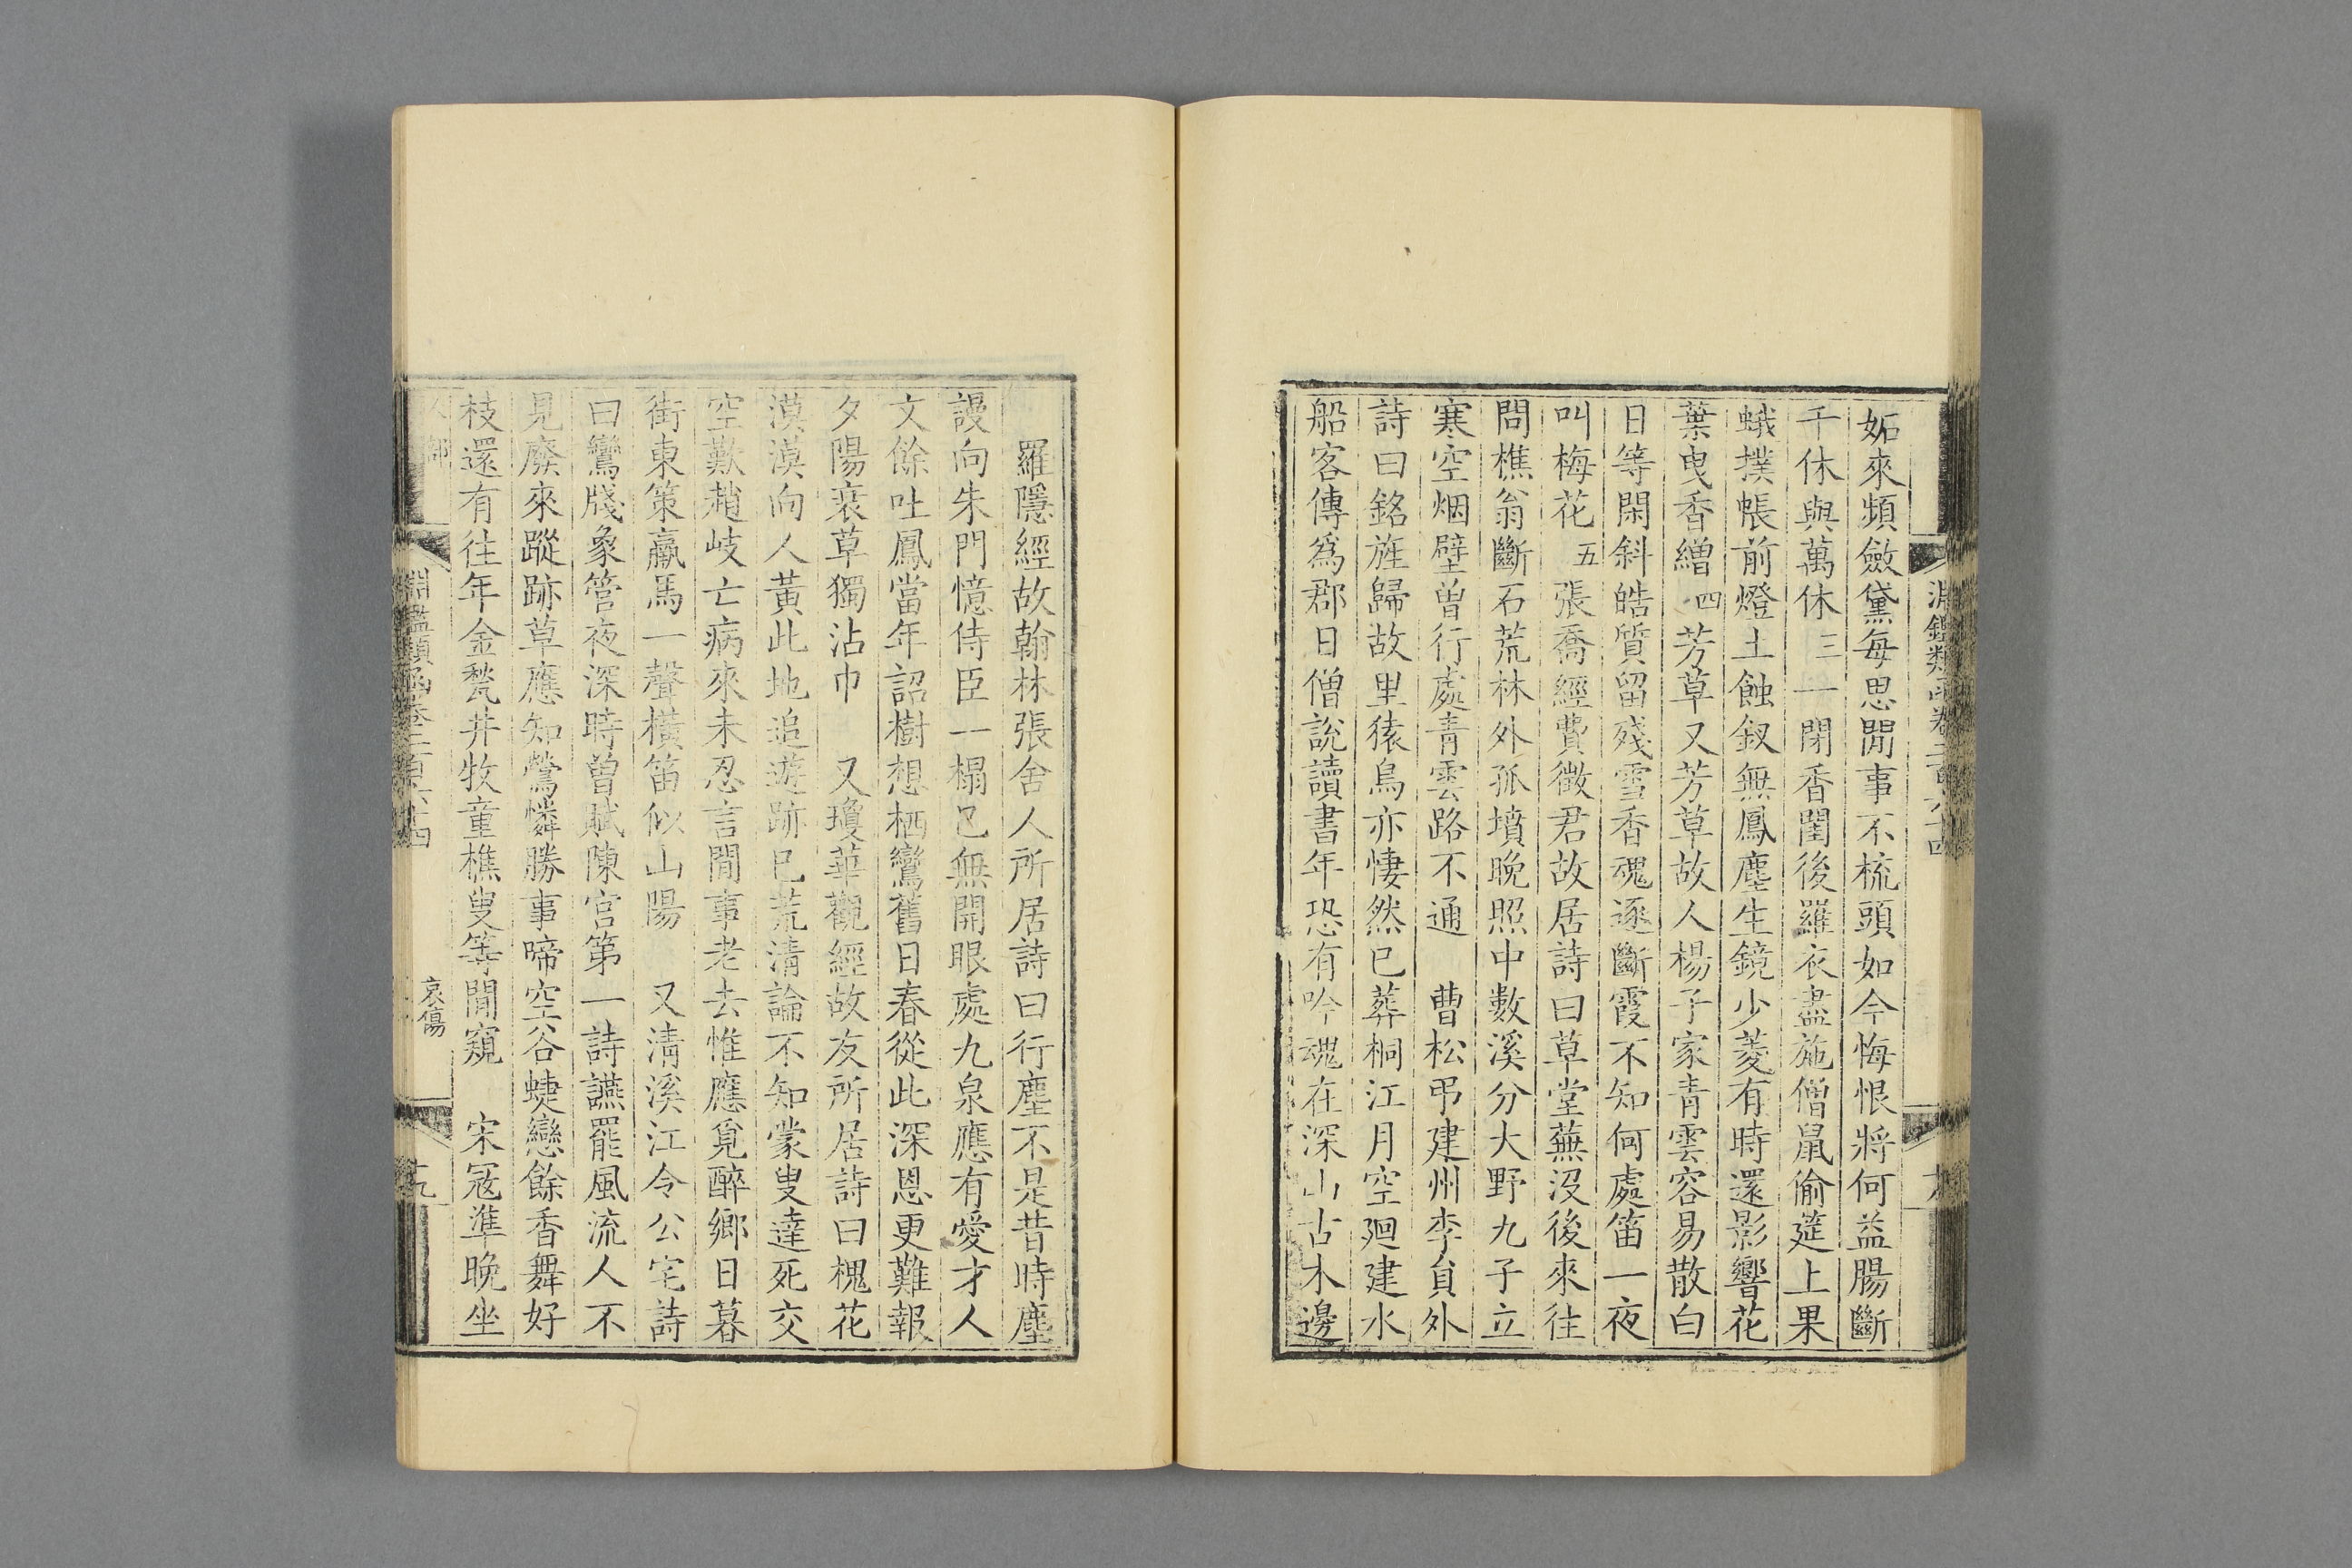 妬來頻斂黛每思閒事不梳頭如今悔恨將何益腸斷
千休與萬休 三 一閉香閨後羅衣盡施僧鼠偷筵上果
蛾撲帳前燈土蝕釵無鳳塵生鏡少菱有時還影響花
葉曳香繒 四 芳草又芳草故人楊子家青雲容易散白
日等閑斜皓質留殘雪香魂逐斷霞不知何處笛一夜
叫梅花 五 張喬經費徵君故居詩曰草堂蕪沒後來往
問樵翁斷石荒林外孤墳晚照中數溪分大野九子立
寒空烟壁曾行處青雲路不通 曹松弔建州李員外
詩曰銘旌歸故里猿鳥亦悽然已葬桐江月空廻建水
船客傳為郡日僧說讀書年恐有吟魂在深山古木邊
羅隱經故翰林張舍人所居詩曰行塵不是昔時塵
謾向朱門憶侍臣一榻已無開眼處九泉應有愛才人
文餘吐鳳當年詔樹想栖鸞舊日春從此深恩更難報
夕陽衰草獨沾巾 又瓊華觀經故友所居詩曰槐花
漠漠向人黃此地追遊跡已荒清論不知蒙叟達死交
空歎趙岐亡病來未忍言閒事老去惟應覓醉鄉日暮
街東策羸馬一聲橫笛似山陽 又清溪江令公宅詩
曰鸞牋象管夜深時曾賦陳宮第一詩讌罷風流人不
見廢來蹤跡草應知鶯憐勝事啼空谷蜨戀餘香舞好
枝還有往年金甃井牧童樵叟等閒窺 宋寇準晚坐
淵鑑類函卷二百六十四
哀傷
十九